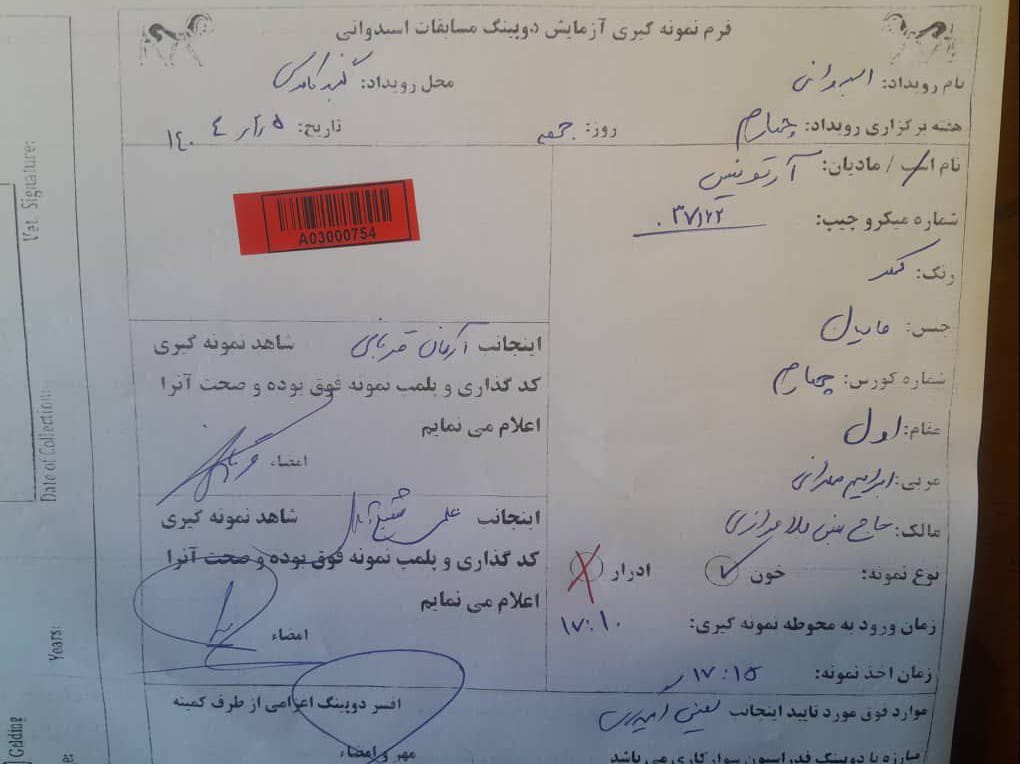 فرم نمونه گیری آزمایش دوپینگ مسابقات اسبدوانی
نام رویداد: اسبدوانی
محل رویداد: گنبد کاووس
هفته برگزاری رویداد: چهارم
روز: جمعه
تاریخ: ۱۴۰۴ آذر
نام اسب / مادیان: آرتونیس
شماره میکرو چیپ: ۰۳۷۱۲۲
رنگ: کهر
جنس: مادیان
شماره کورس: چهارم
مقام: اول
مربی: ابراهیم
مالک: حاج
نوع نمونه: خون ✓ ادرار
زمان ورود به محوطه نمونه گیری: ۱۷:۱۰
زمان اخذ نمونه: ۱۷:۱۵
A03000754
اینجانب آرمان قربانی شاهد نمونه گیری
کد گذاری و پلمب نمونه فوق بوده و صحت آنرا
اعلام می نمایم
امضاء
اینجانب علی شاهد نمونه گیری
کد گذاری و پلمب نمونه فوق بوده و صحت آنرا
اعلام می نمایم
امضاء
موارد فوق مورد تایید اینجانب
مبارزه با دوپینگ فدراسیون سوارکاری می باشد
افسر دوپینگ اعزامی از طرف کمیته
مهر و امضاء
Vet. Signature:
Date of Collection:
Years:
Gelding